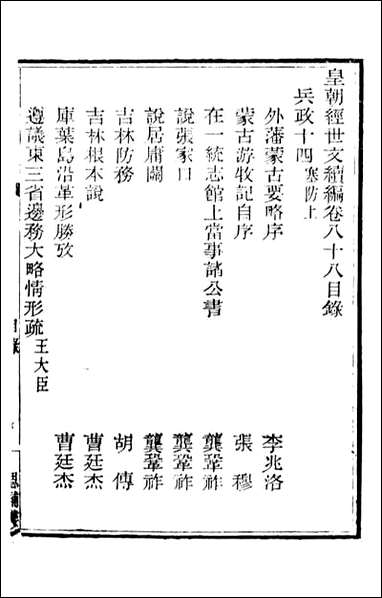 皇朝經世文續編卷八十八目錄
兵政十四塞防上
外藩蒙古要略序 李兆洛
蒙古游牧記自序 張穆
在一統志館上當事諸公書 龔鞏祚
說張家口 龔鞏祚
說居庸關 龔鞏祚
吉林防務 胡傳
吉林根本說 曹廷杰
庫葉島沿革形勝攷 曹廷杰
遵議東三省邊務大略情形疏 王大臣
思補樓